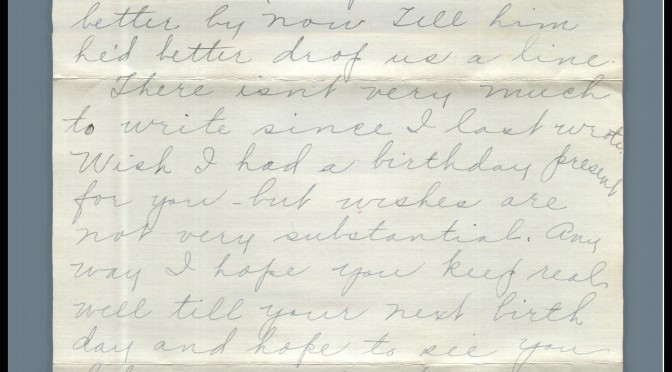 better by now Tell him
he'd better drop us a line.
There isnt very much
to write since I last wrote.
Wish I had a birthday present
for you - but wishes are
not very substantial. Any
way I hope you keep real
well till your next birth
day and hope to see you